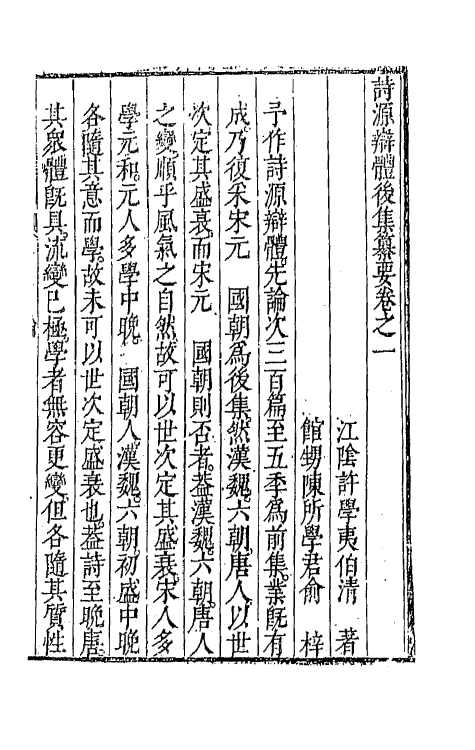 詩源辯體後集纂要卷之一
江陰許學夷伯清 著
館甥陳所學君俞 梓
予作詩源辯體。先論次三百篇至五季爲前集。業旣有
成。乃復采宋元 國朝爲後集。然漢魏。六朝。唐人。以世
次定其盛衰。而宋元 國朝則否者。葢漢魏。六朝。唐人
之變。順乎風氣之自然。故可以世次定其盛衰。宋人多
學元和。元人多學中晚。 國朝人漢魏。六朝。初盛中晚
各隨其意而學。故未可以世次定盛衰也。葢詩至晚唐。
其衆體旣具。流變已極。學者無容更變。但各隨其質性